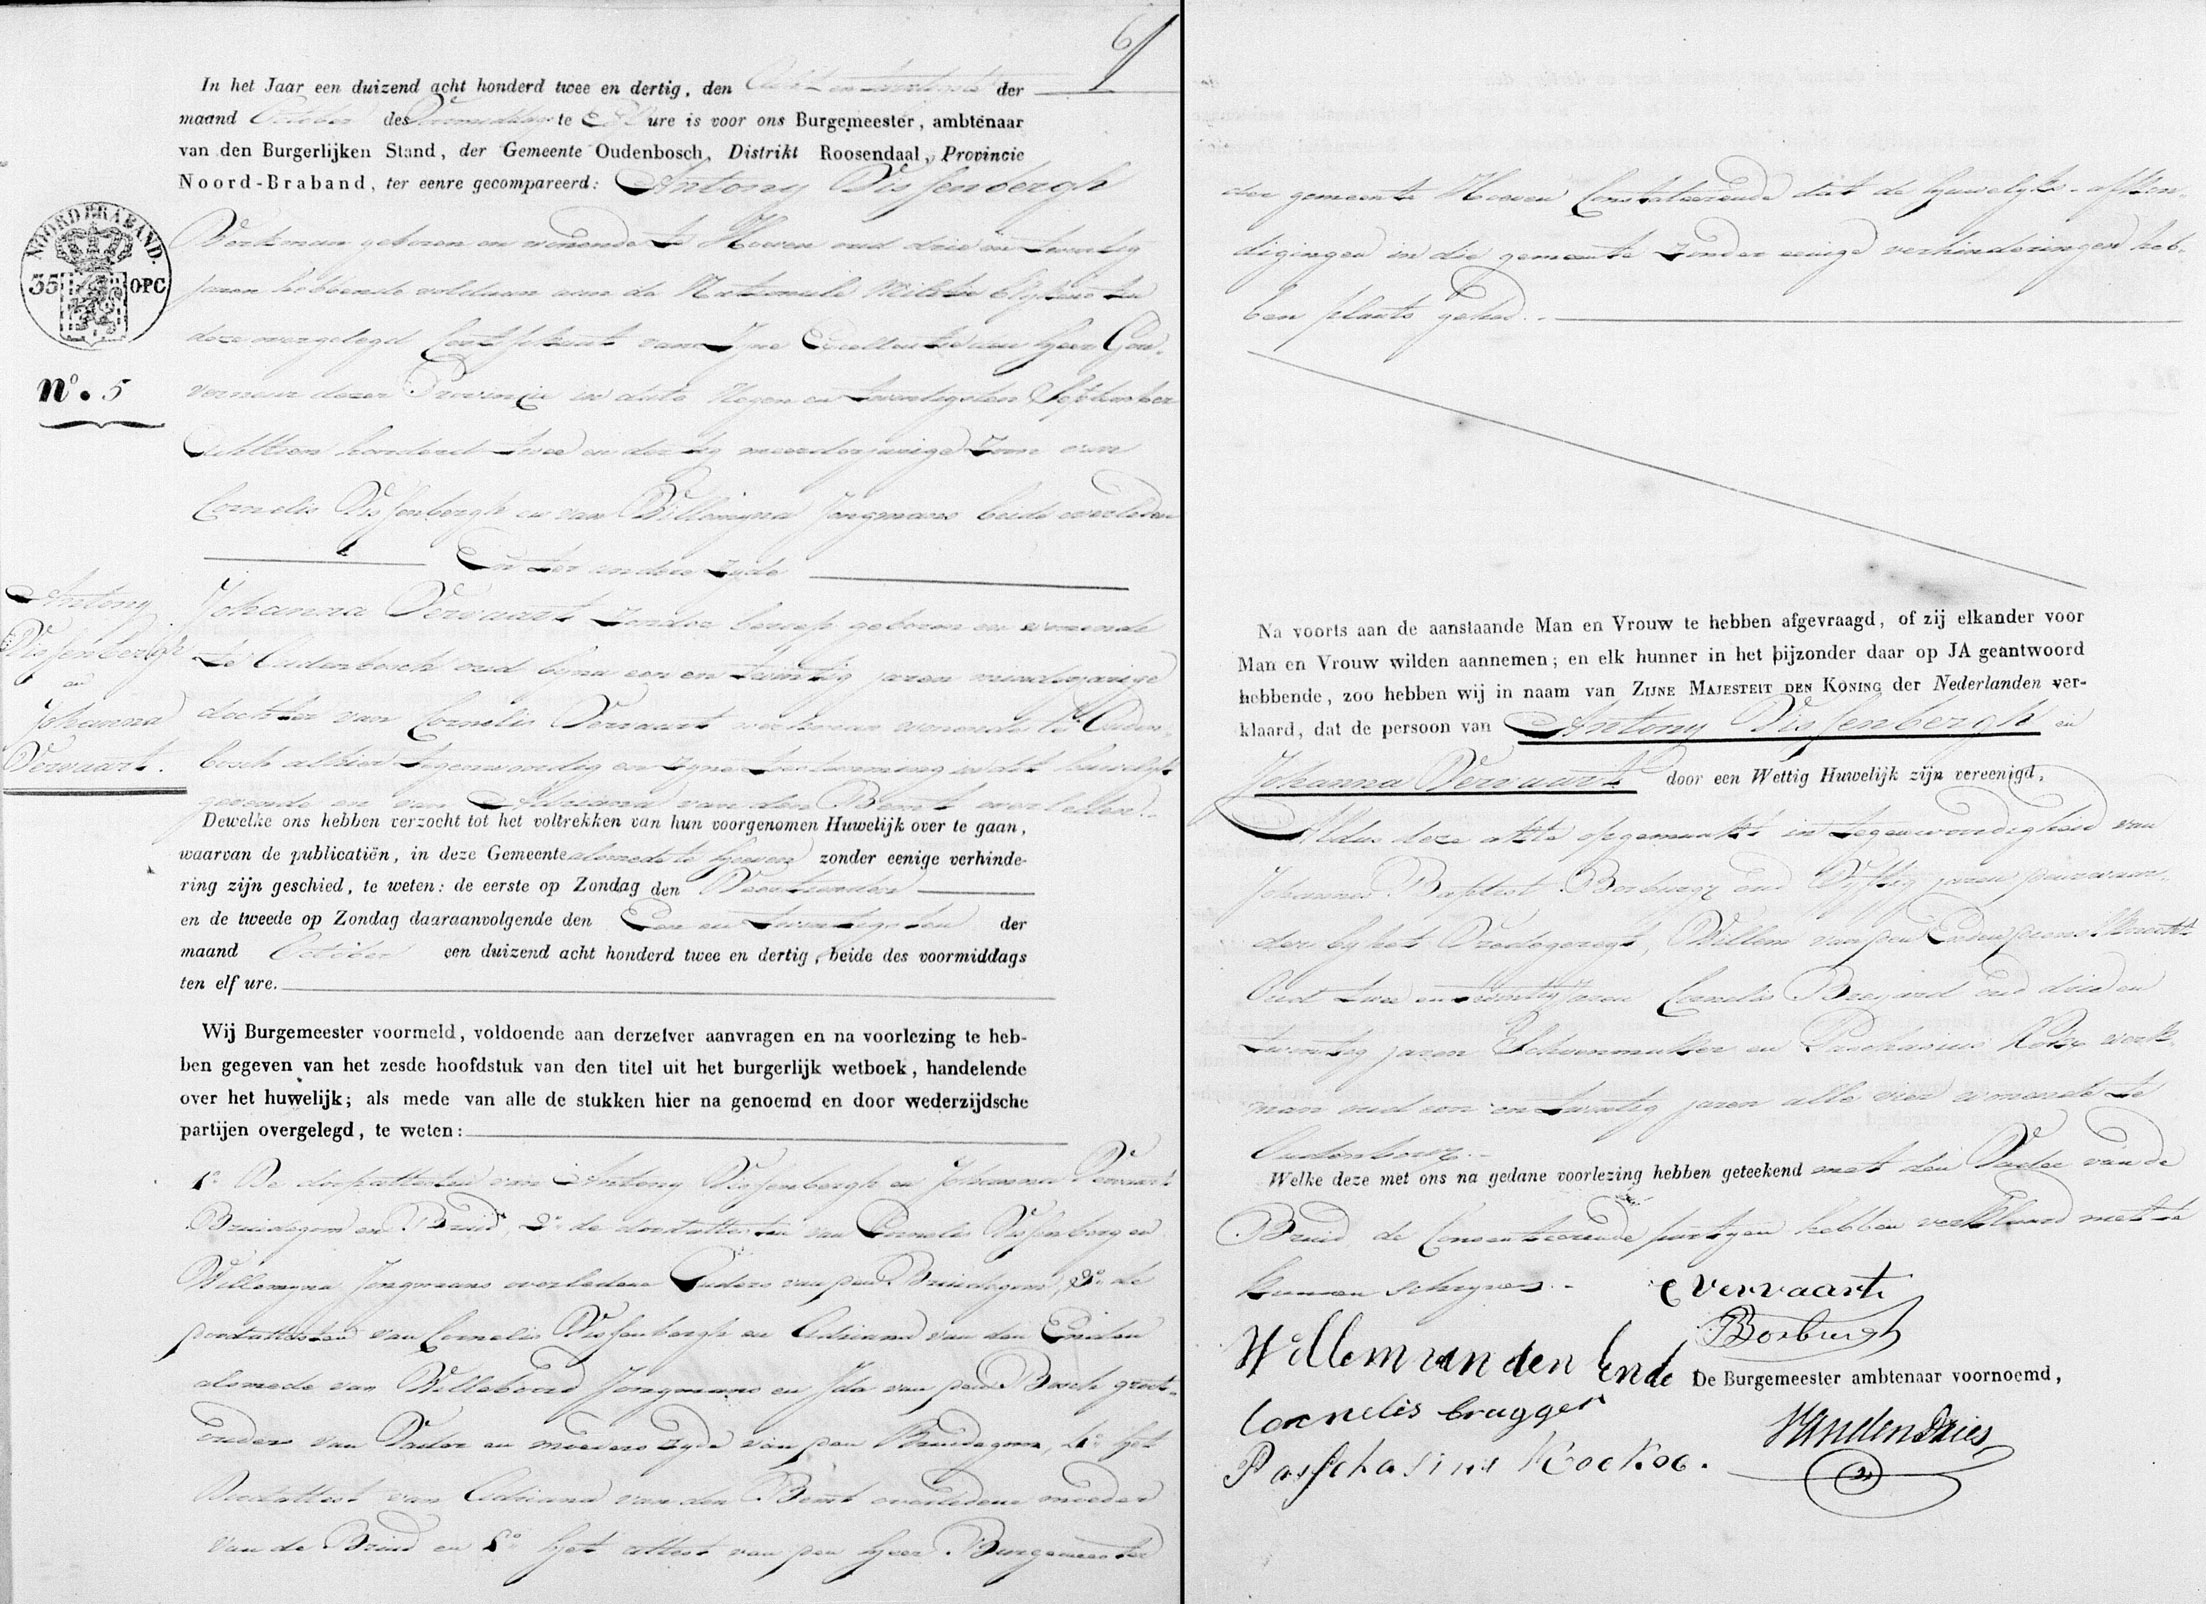 6
In het Jaar een duizend acht honderd twee en dertig, den Acht en twintigste der
maand October des Voormiddags te Elf ure is voor ons Burgemeester, ambtenaar
van den Burgerlijken Stand, der Gemeente Oudenbosch, Distrikt Roosendaal, Provincie
Noord-Braband, ter eenre gecompareerd: Antony Vissenbergh
NOORDBRABAND.
35 OPC
Werkman geboren en wonende te Hoeven oud drie en twintig
jaren hebbende voldaan aan de Nationale Militie blykens
deze overgelegd Certifikaat van Zyne Excellentie Heer Gou-
verneur dezer Provincie in dato Negen en twintigsten September
No. 5
Achttien honderd twee en dertig meerderjarige Zoon van
Cornelis Vissenbergh en van Willemyna Jongmans beide overleden
En ter andere zyde
Antony
Vissenbergh
en
Johanna
Vervaart.
Johanna Vervaart zonder beroep geboren en wonende
te Oudenbosch oud byna een en twintig jaren minderjarige
dochter van Cornelis Vervaart werkman wonende te Ouden-
bosch alhier tegenwoordig en zyne toestemming in dit huwelyk
gevende en van Adriana van den Bemt overleden.
Dewelke ons hebben verzocht tot het voltrekken van hun voorgenomen Huwelijk over te gaan,
waarvan de publicatiën, in deze Gemeente alsmede te Hoeven zonder eenige verhinde-
ring zijn geschied, te weten: de eerste op Zondag den Veertienden
en de tweede op Zondag daaraanvolgende den Een en twintigsten der
maand October een duizend acht honderd twee en dertig, beide des voormiddags
ten elf ure.
Wij Burgemeester voormeld, voldoende aan derzelver aanvragen en na voorlezing te heb-
ben gegeven van het zesde hoofdstuk van den titel uit het burgerlijk wetboek, handelende
over het huwelijk; als mede van alle de stukken hier na genoemd en door wederzijdsche
partijen overgelegd, te weten:
1o De doopattesten van Antony Vissenbergh en Johanna Vervaart
Bruidegom en Bruid, 2o de doodattesten van Cornelis Vissenberg en
Willemyna Jongmans overledene Ouders van den Bruidegom, 3o de
doodattesten van Cornelis Vissenbergh en Adriana van den Enden
alsmede van Willebord Jongmans en Ida van den Bosch groot-
ouders van Vader en moeders zyde van den Bruidegom, 4o het
Doodattest van Adriana van den Bemt overledene moeder
van de Bruid en 5o het attest van den Heer Burgemeester
der gemeente Hoeven Constateerende dat de huwelyks-afkon-
digingen in die gemeente zonder eenige verhinderingen heb-
ben plaats gehad.
Na voorts aan de aanstaande Man en Vrouw te hebben afgevraagd, of zij elkander voor
Man en Vrouw wilden aannemen; en elk hunner in het bijzonder daar op JA geantwoord
hebbende, zoo hebben wij in naam van ZIJNE MAJESTEIT DEN KONING der Nederlanden ver-
klaard, dat de persoon van Antony Vissenbergh en
Johanna Vervaart door een Wettig Huwelijk zijn vereenigd,
Aldus deze akte opgemaakt in tegenwoordigheid van
Johannes Baptist Borburgh oud Vyftig jaren
der by het Vredegeregt, Willem van den Enden
Oud twee en twintig jaren Cornelis oud drie en
twintig jaren Schoenmaker en Paschasius werk-
man oud een en twintig jaren alle vier wonende te
Oudenbosch.
Welke deze met ons na gedane voorlezing hebben geteekend met den Vader van de
Bruid de Contracteerende partyen hebben verklaard niet te
kunnen schryven.
C vervaart
Borburgh
Willem van den Ende
De Burgemeester ambtenaar voornoemd,
Cornelis bragger
VandenDries
Passchasius Koekoe.